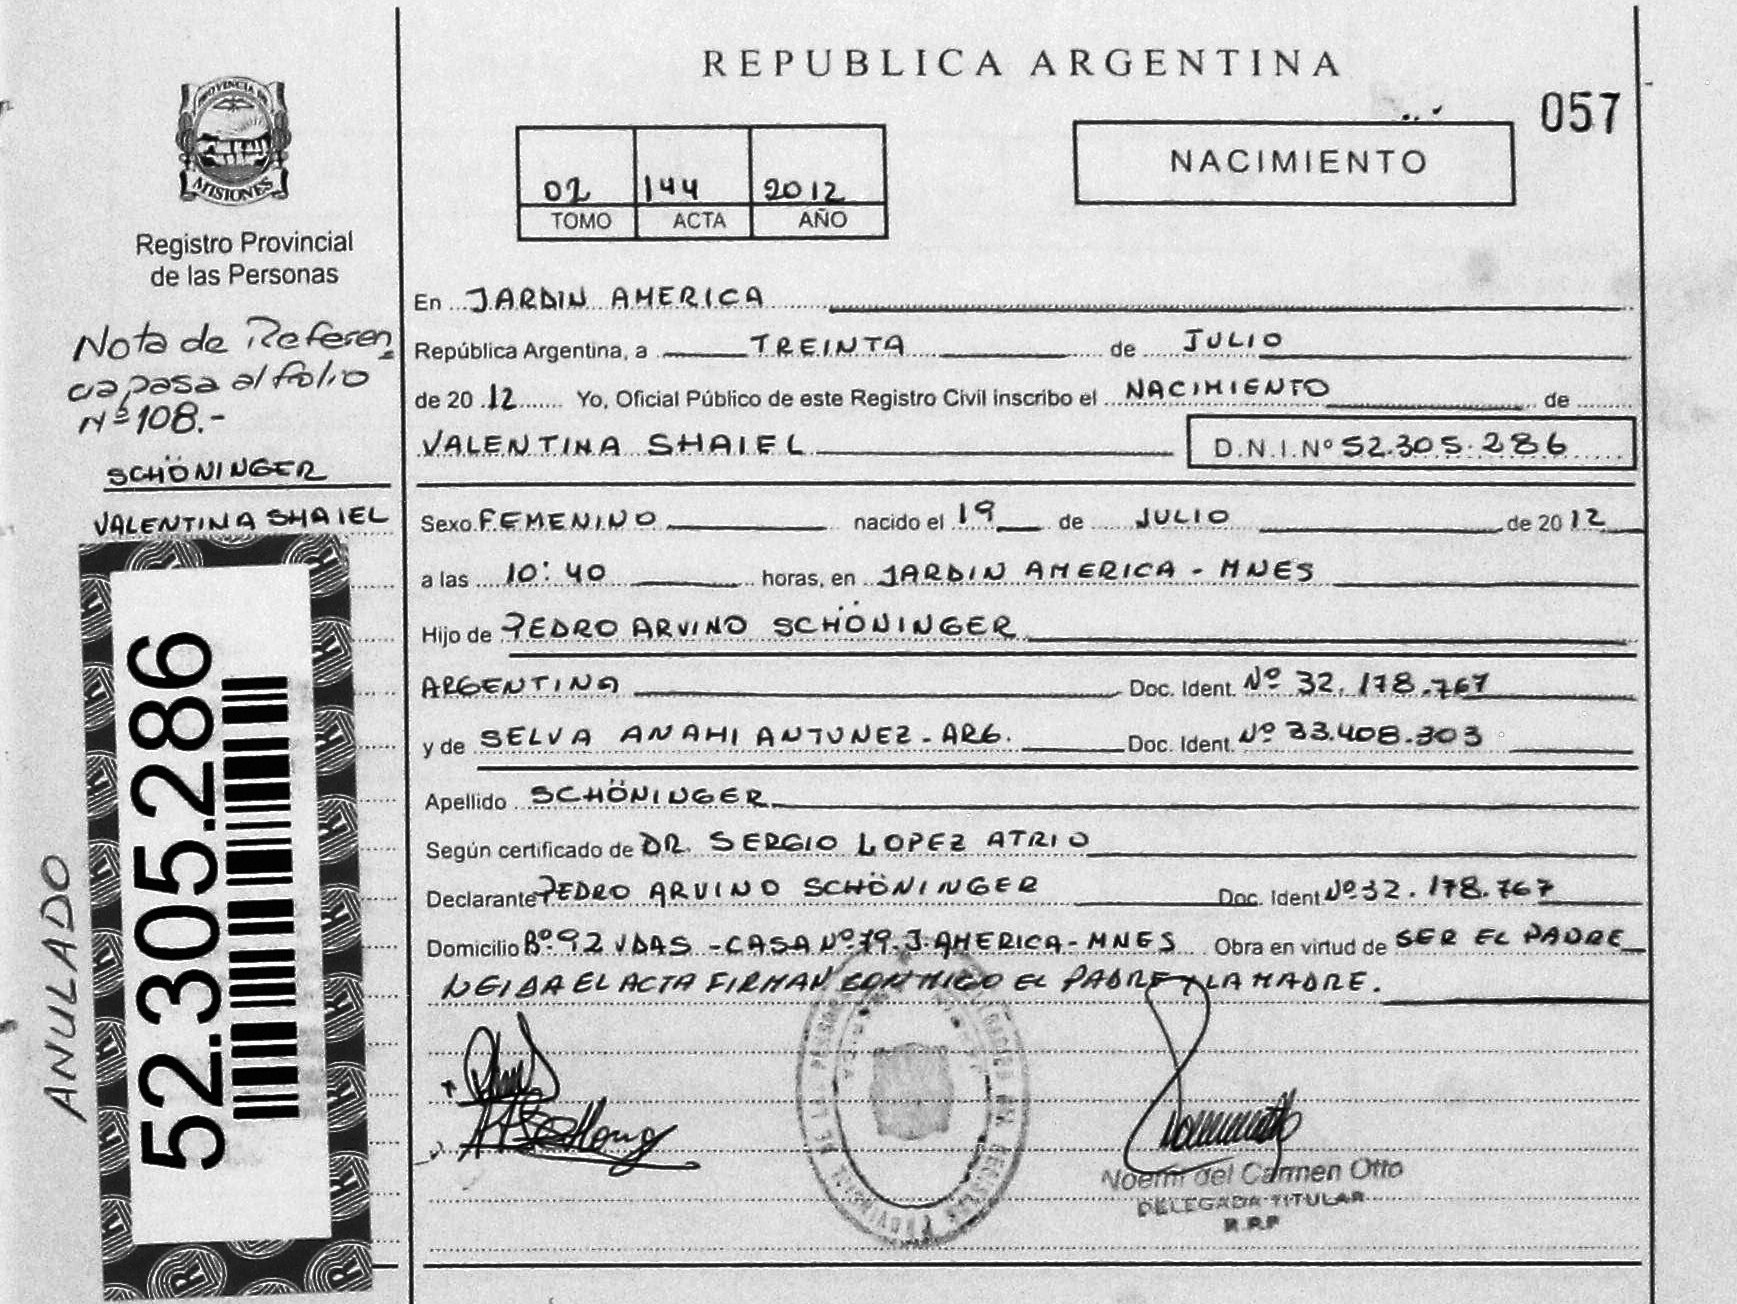 REPUBLICA ARGENTINA
057
NACIMIENTO
02 144 2012
TOMO ACTA AÑO
PROVINCIA DE
MISIONES
Registro Provincial
de las Personas
Nota de Referen
cia pasa al folio
Nº 108.-
SCHÖNINGER
VALENTINA SHAIEL
52.305.286
ANULADO
En JARDIN AMERICA
República Argentina, a TREINTA de JULIO
de 2012 Yo, Oficial Público de este Registro Civil inscribo el NACIMIENTO de
VALENTINA SHAIEL D.N.I.Nº 52.305.286
Sexo FEMENINO nacido el 19 de JULIO de 2012
a las 10:40 horas, en JARDIN AMERICA - MNES
Hijo de PEDRO ARVINO SCHÖNINGER
ARGENTINA Doc. Ident. Nº 32.178.767
y de SELVA ANAHI ANTUNEZ - ARG. Doc. Ident. Nº 33.408.303
Apellido SCHÖNINGER
Según certificado de DR. SERGIO LOPEZ ATRIO
Declarante PEDRO ARVINO SCHÖNINGER Doc. Ident Nº 32.178.767
Domicilio Bº. 92 VDAS - CASA Nº 79. J. AMERICA - MNES Obra en virtud de SER EL PADRE
LEIDA EL ACTA FIRMAN CONMIGO EL PADRE Y LA MADRE.
Noemi del Carmen Otto
DELEGADA TITULAR
R.P.P